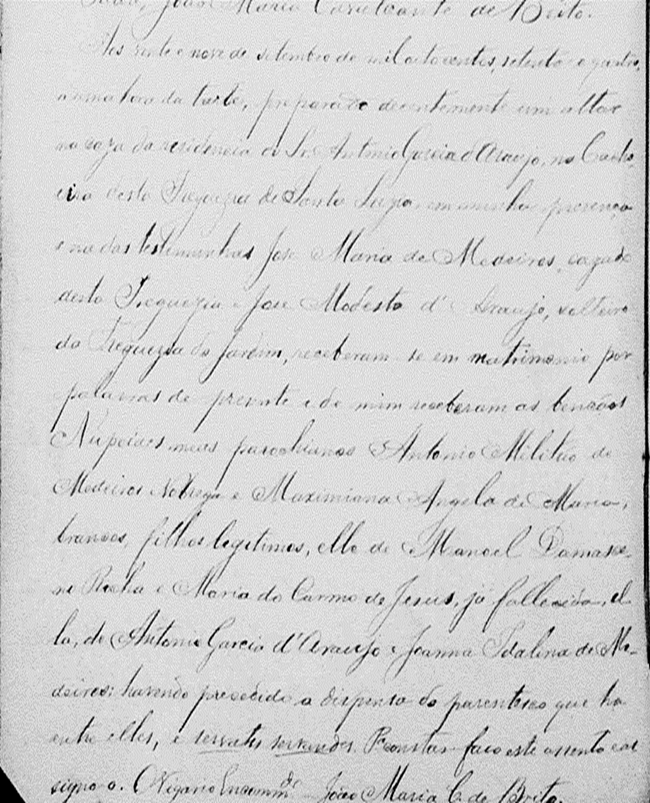 João Maria Cavalcante de Brito.
Aos vinte e nove de setembro de mil oito centos, setenta e quatro,
n'uma hora da tarde, preparado decentemente um altar
na caza da residencia do Sr. Antonio Garcia d'Araujo, na Cacho-
eira desta Freguezia de Santa Luzia, em minha presença
e na das testimunhas José Maria de Medeiros, cazado
desta Freguezia e José Modesto d'Araujo, solteiro
da Freguezia do Jardim, receberam-se em matrimonio por
palavras de prezente e de mim receberam as bençãos
Nupciaes meus parochianos Antonio Militão de
Medeiros Nobrega e Maximiana Angela de Maria,
brancos, filhos legitimos, elle de Manoel Damasce-
no Rocha e Maria do Carmo de Jesus, já fallecida, el-
la, de Antonio Garcia d'Araujo e Joanna Idalina de Me-
deiros; havendo precedido a dispensa do parentesco que ha
entre elles, e servatis servandis. Pa constar faço este assento e as-
signo-o. O Vigario Encommdo João Maria C. de Brito.